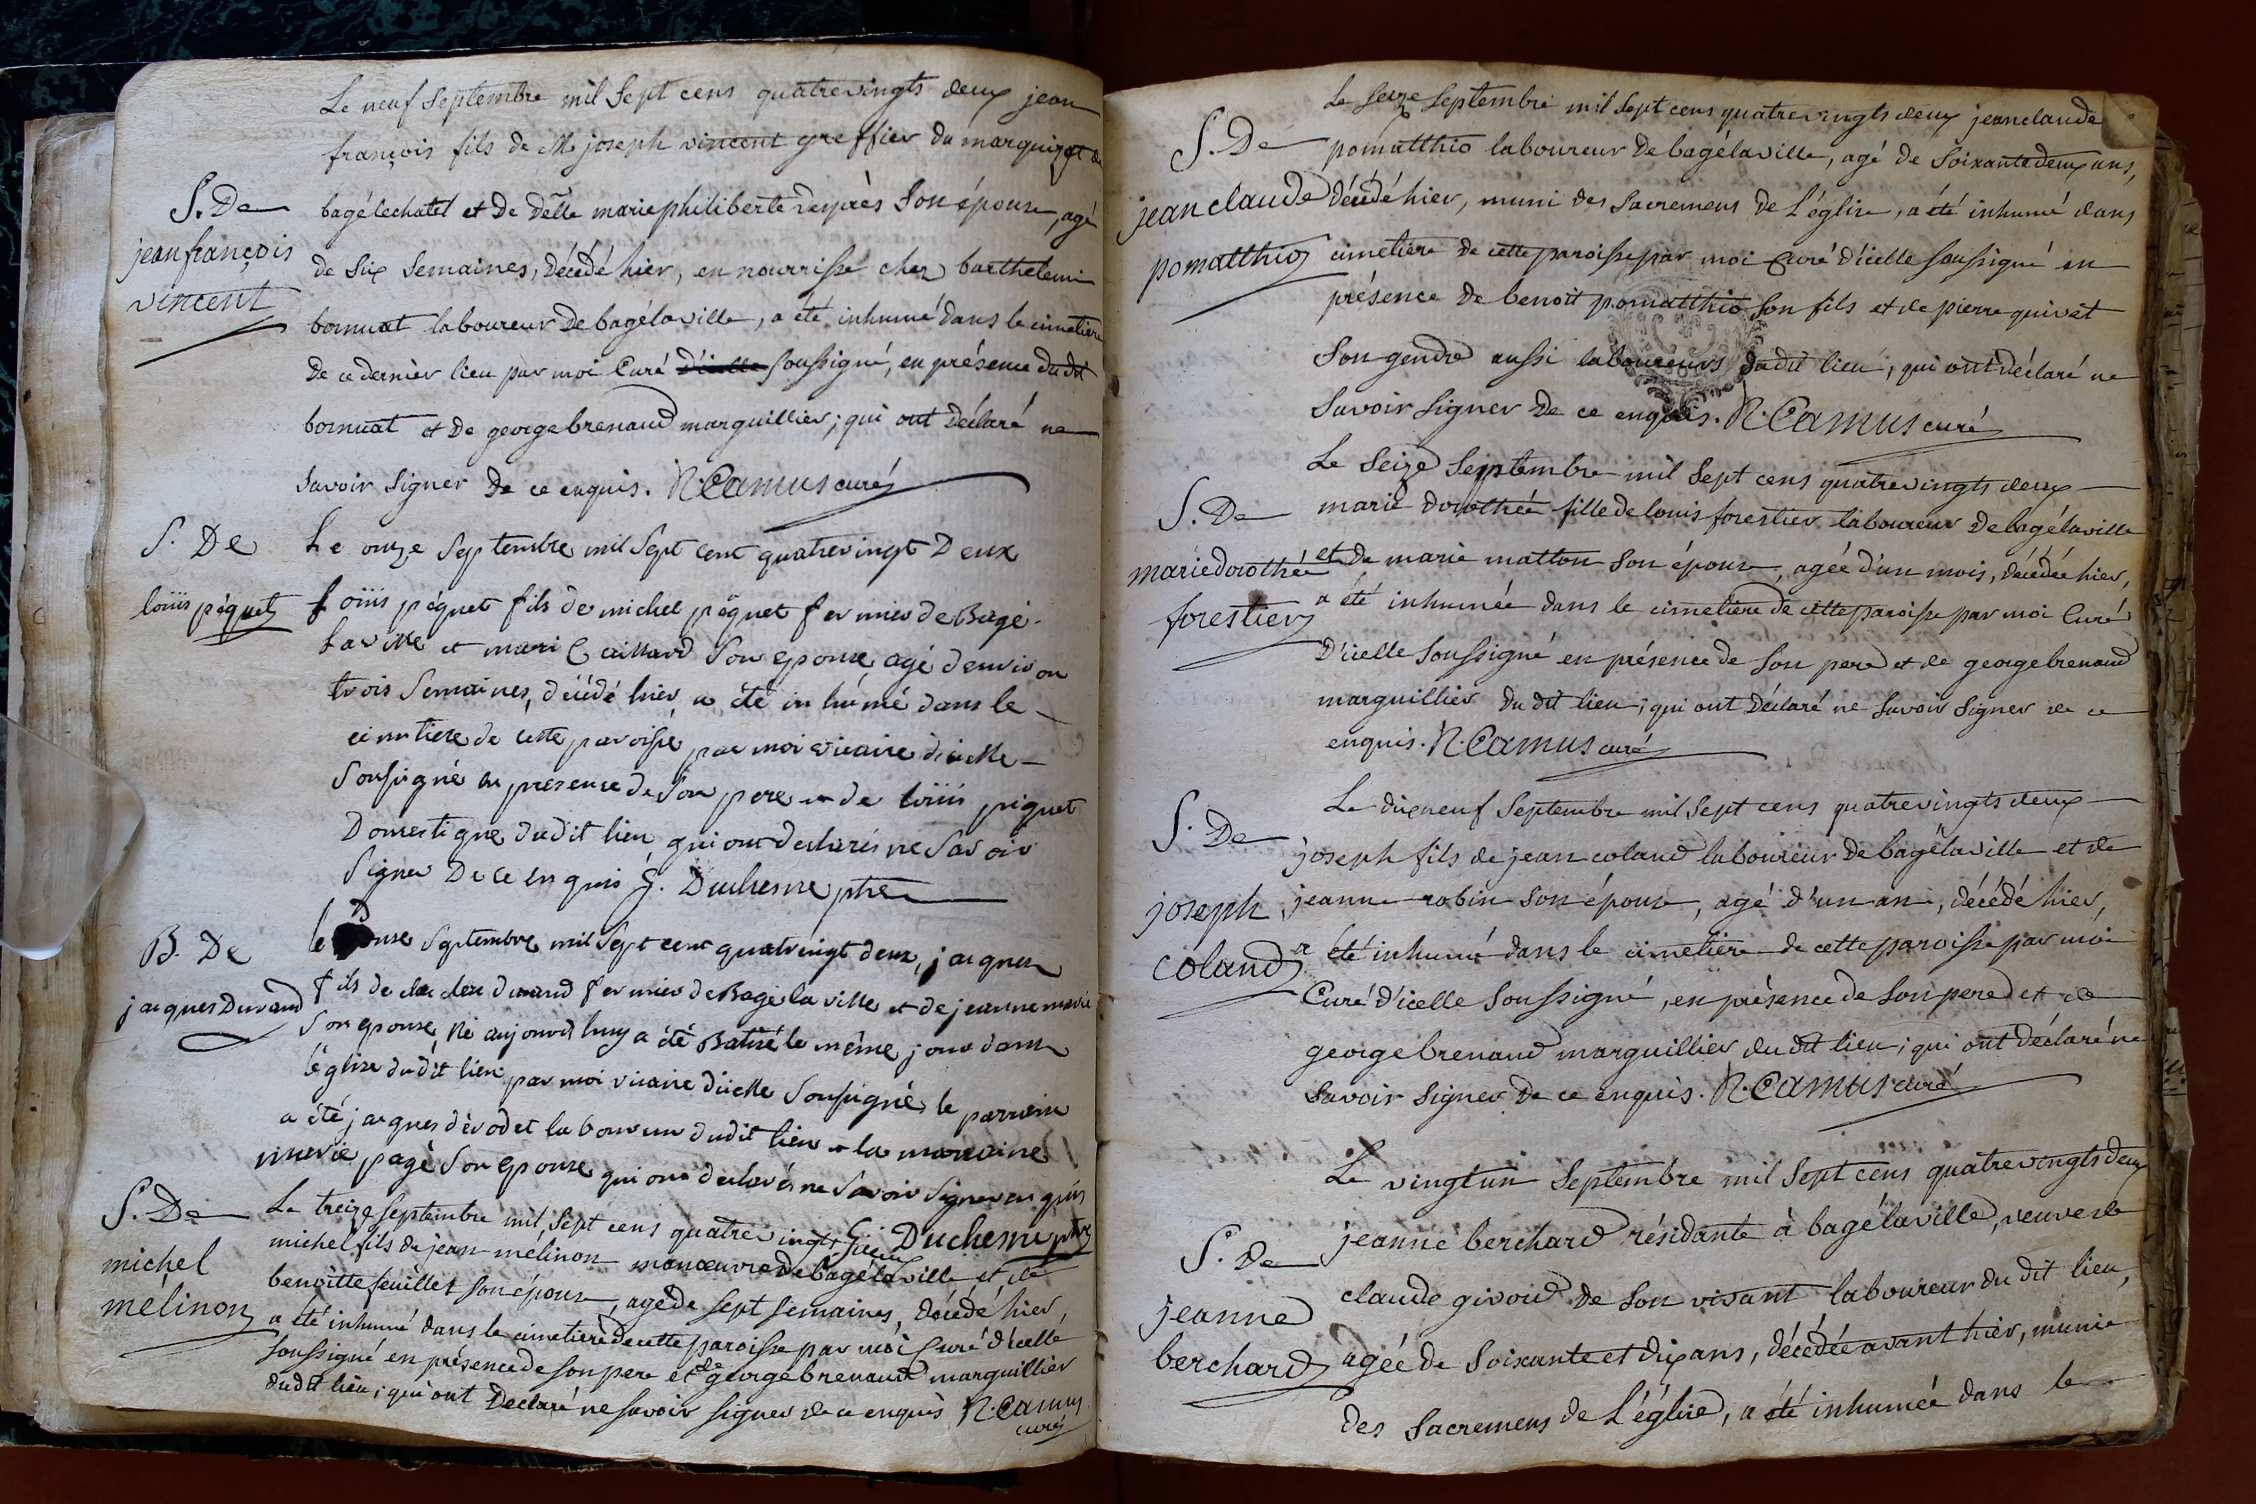 Le neuf Septembre mil Sept cens quatrevingts deux jean
françois fils de Mr joseph vincent greffier du marquizat de
S. De
jean françois
vincent
bagélechatel et de delle marie philiberte desprès Son épouse, agé
de Six Semaines, décédé hier, en nourrisse chez barthelemi
bornuat laboureur de bagélaville, a été inhumé dans le cimetiere
de ce dernier lieu par moi Curé d'icelle soussigné, en présence du dit
bornuat et de george brenaud marguillier; qui ont déclaré ne
savoir signer de ce enquis. N. Camus curé
S. De
louis péquet
Le onze Septembre mil Sept cent quatrevingt Deux
Louis péquet fils de michel péquet fermier de Bagé-
laville et mari Caillard Son epouse, agé d'environ
trois Semaines, décédé hier, a été inhumé dans le
cimetiere de cette paroisse, par moi vicaire d'icelle
Sousigné en presence de Son pere et de louis piquet
Domestique dudit lieu qui ont declarés ne Savoir
Signer De ce enquis G. Duchesne ptre
B. De
jacques Durand
le onse Septembre mil Sept cent quatrevingt deux, jacques
fils de claude durand fermier de Bagé la ville et de jeanne marie
Son epouse, né aujourd'huy a été Batisé le même jour dans
l'église dudit lieu par moi vicaire d'icelle Sousigné, le parrein
a été jacques dévodet laboureur dudit lieu et la marraine
marie pagé Son epouse qui ont declarés ne Savoir Signer enquis
G. Duchesne ptre
S. De
michel
mélinon
Le treize septembre mil Sept cens quatrevingts deux
michel fils de jean mélinon manœuvre de bagélaville et de
benoitte feuillet son épouse, agé de sept semaines, décédé hier,
a été inhumé dans le cimetière de cette paroisse par moi Curé d'icelle
soussigné en présence de son pere et de george brenaud marguillier
du dit lieu; qui ont Déclaré ne savoir signer de ce enquis N. Camus
curé
Le seize Septembre mil Sept cens quatrevingts deux jean claude
S. De
jean claude
pomatthio
pomatthio laboureur de bagélaville, agé de soixante deux ans,
décédé hier, muni des Sacremens de L'église, a été inhumé dans
cimetiere de cette paroisse par moi Curé d'icelle soussigné en
présence de benoit pomatthio son fils et de pierre quivet
Son gendre aussi laboureurs du dit lieu, qui ont déclaré ne
Savoir signer de ce enquis. N. Camus curé
Le Seize Septembre mil Sept cens quatrevingts deux
S. De
marie dorothée
forestier
marie dorothée fille de louis forestier laboureur de bagélaville
et de marie matton Son épouse, agée d'un mois, décédée hier,
a été inhumée dans le cimetière de cette paroisse par moi Curé
D'icelle Soussigné en présence de Son pere et de george brenaud
marguillier du dit lieu; qui ont Déclaré ne Savoir Signer de ce
enquis. N. Camus curé
Le dixneuf Septembre mil Sept cens quatrevingts deux
S. De
joseph
coland
joseph fils de jean coland laboureur de bagélaville et de
jeanne robin Son épouse, agé d'un an, décédé hier,
a été inhumé dans le cimetière de cette paroisse par moi
Curé d'icelle Soussigné, en présence de Son pere et de
george brenaud marguillier du dit lieu; qui ont déclaré ne
Savoir Signer de ce enquis. N. Camus curé
Le vingtun Septembre mil Sept cens quatrevingts deux
S. De
jeanne
berchard
jeanne berchard résidante à bagélaville, veuve de
claude givord de Son vivant laboureur du dit lieu,
agée de Soixante et dix ans, décédée avant hier, munie
des Sacremens de L'église, a été inhumée dans le